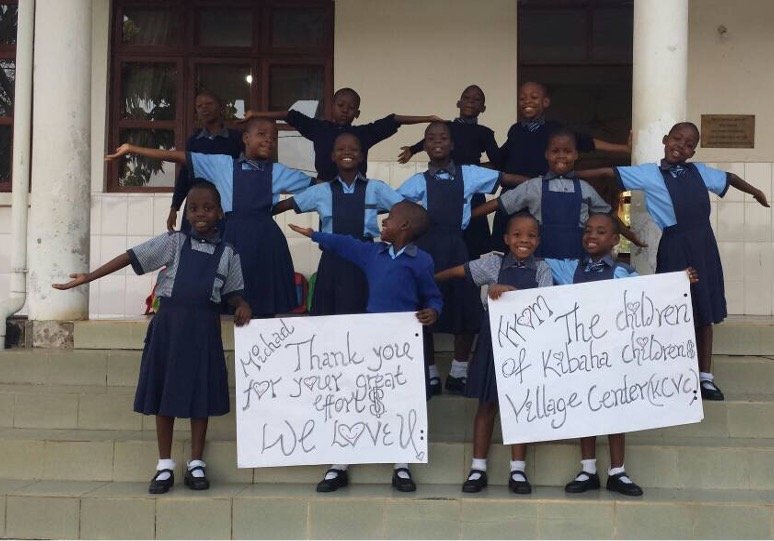 Michael
Thank you
for your great
efforts
We Love U!
KKOM
The children
of Kibaha children's
Village Center(KCVC)